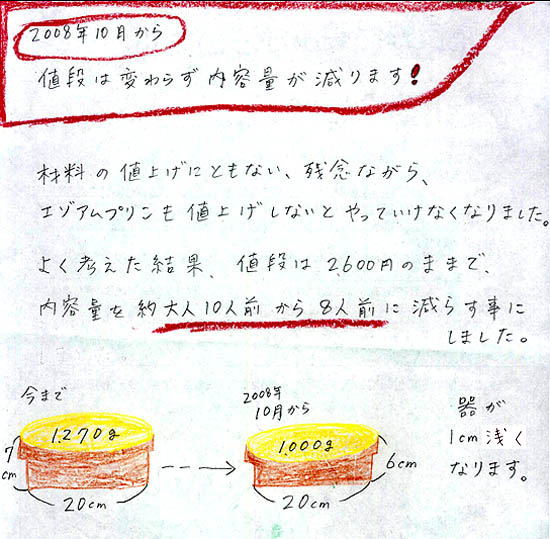 2008年10月から
値段は変わらず内容量が減ります!
材料の値上げにともない、残念ながら、
エゾアムプリンも値上げしないとやっていけなくなりました。
よく考えた結果、値段は2,600円のままで、
内容量を約大人10人前から8人前に減らす事に
しました。
今まで
1,270g
7cm
20cm
2008年
10月から
1000g
6cm
20cm
器が
1cm浅く
なります。